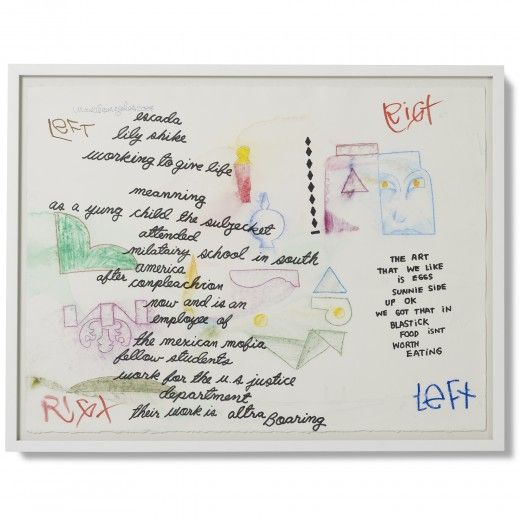 LeFT
escada
lily shike
working to give life
meanning
as a yung child the subjecket
attended
milatairy school in south
america
after conpleachion
now and is an
employee of
the mexican mafia
fellow students
work for the u.s justice
department
their work is altra Boaring
RisxT
THE ART
THAT WE LIKE
IS EGGS
SUNNIE SIDE
UP OK
WE GOT THAT IN
BLASTICK
FOOD ISNT
WORTH
EATING
LeFT